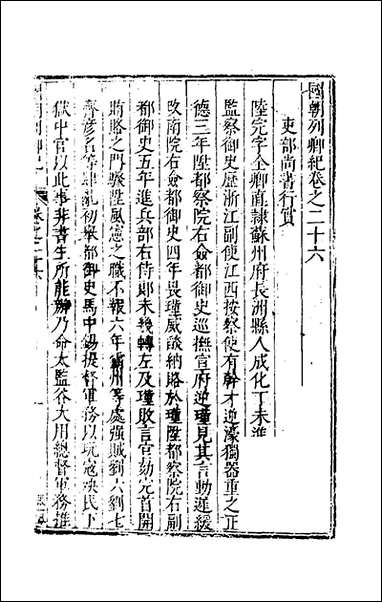 國朝列卿紀卷之二十六
吏部尚書行實
陸完字全卿直隸蘇州府長洲縣人成化丁未進
監察御史歷浙江副使江西按察使有幹才逆濠獨器重之正
德三年陞都察院右僉都御史巡撫宣府逆瑾見其言動遲緩
改南院右僉都御史四年畏瑾威燄納賂於瑾陞都察院右副
都御史五年進兵部右侍郎未幾轉左及瑾敗言官劾完首開
賄賂之門驟陞風憲之職不報六年霸州等處強賊劉六劉七
齊彥名等肆亂初舉都御史馬中錫提督軍務以玩寇殃民下
獄中官以此事非書生所能辦乃命太監谷大用總督軍務進